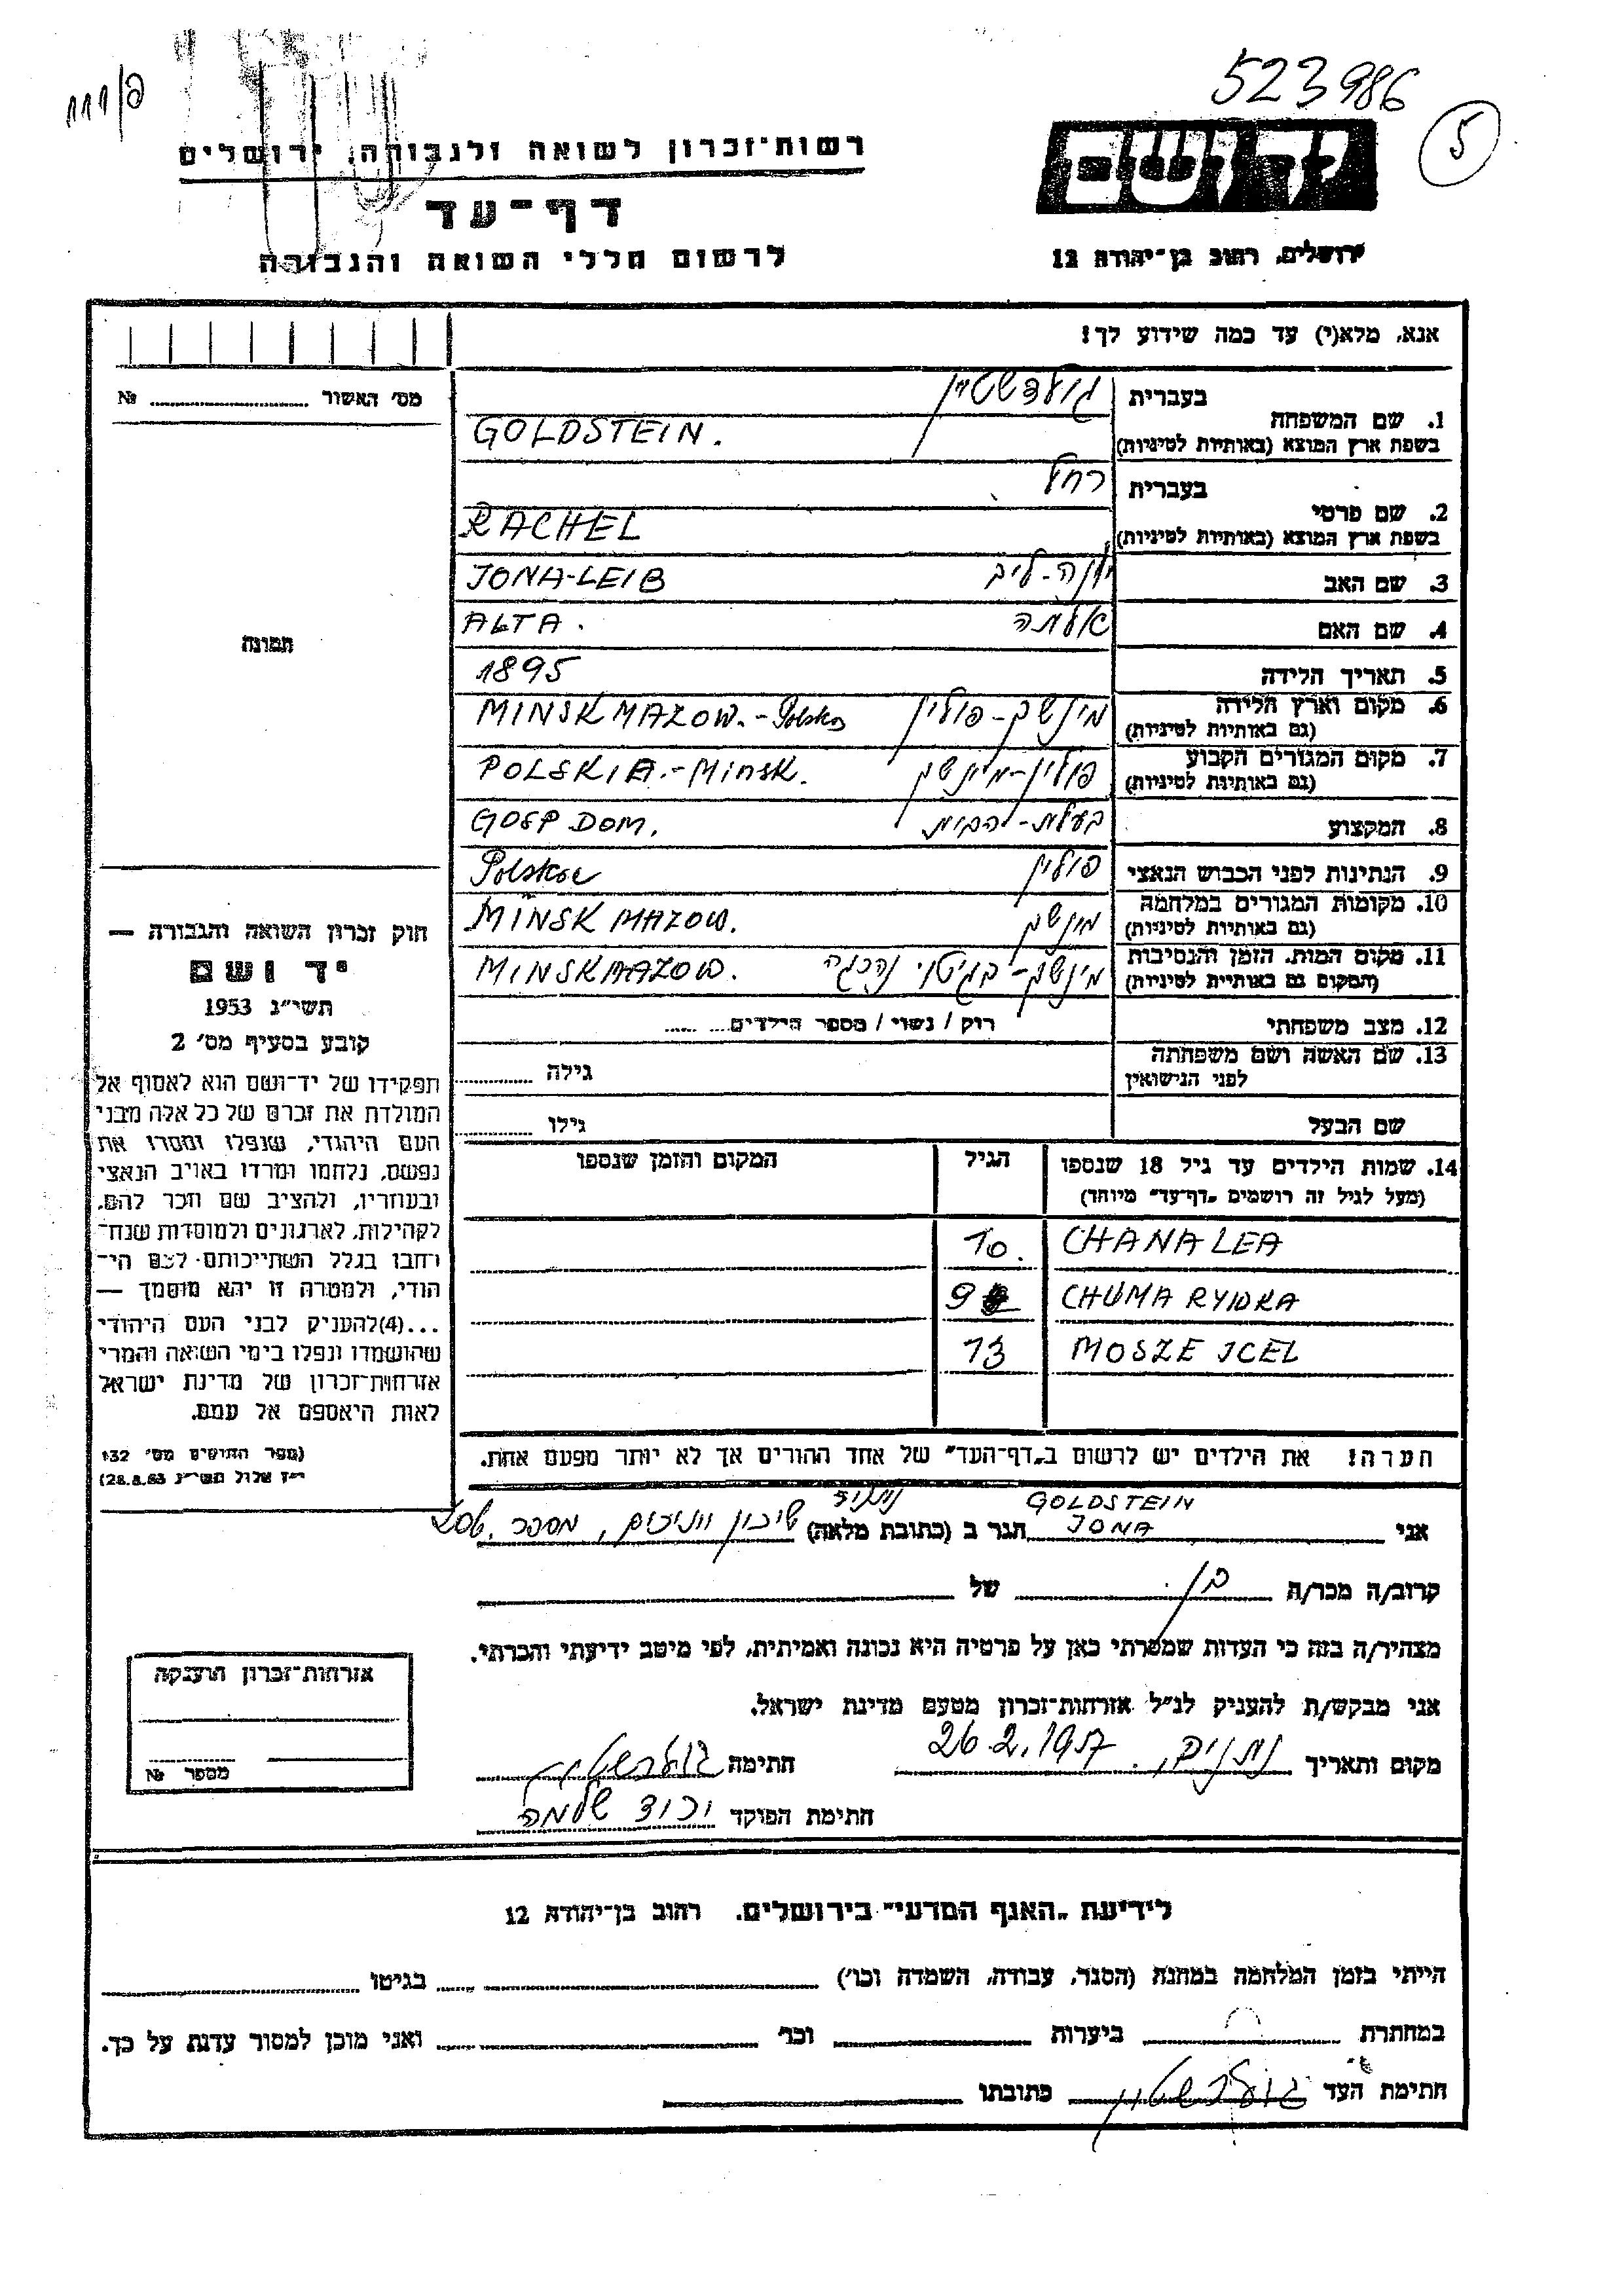 523986
5
פ/111
רשות־זכרון לשואה ולגבורה, ירושלים
דף־עד
לרשום חללי השואה והגבורה
יד ושם
ירושלים, רחוב בן־יהודה 12
אנא, מלא(י) עד כמה שידוע לך!
מס׳ האשור № 
1. שם המשפחה בעברית גולדשטיין
בשפת ארץ המוצא (באותיות לטיניות) GOLDSTEIN.
2. שם פרטי בעברית רחל
בשפת ארץ המוצא (באותיות לטיניות) RACHEL
3. שם האב יונה-ליב JONA-LEIB
4. שם האם אלתה ALTA.
5. תאריך הלידה 1895
6. מקום וארץ הלידה מינשק-פולין MINSK MAZOW.-Polska
(גם באותיות לטיניות)
7. מקום המגורים הקבוע פולין-מינשק POLSKIA.-Minsk.
(גם באותיות לטיניות)
8. המקצוע בעלת-הבית GOSP DOM.
9. הנתינות לפני הכבוש הנאצי פולין Polska
10. מקומות המגורים במלחמה מינשק MINSK MAZOW.
(גם באותיות לטיניות)
11. מקום המות, הזמן והנסיבות מינשק-בגיטו נהרגה MINSK MAZOW.
(המקום גם באותיות לטיניות)
12. מצב משפחתי רוק / נשוי / מספר הילדים
13. שם האשה ושם משפחתה גילה
לפני הנישואין
שם הבעל גילו
14. שמות הילדים עד גיל 18 שנספו הגיל המקום והזמן שנספו
(מעל לגיל זה רושמים „דף־עד״ מיוחד)
CHANA LEA 10.
CHUMA RYWKA 9
MOSZE ICEL 13
הערה! את הילדים יש לרשום ב„דף־העד״ של אחד ההורים אך לא יותר מפעם אחת.
תמונה
חוק זכרון השואה והגבורה —
יד ושם
תשי״ג 1953
קובע בסעיף מס׳ 2
תפקידו של יד־ושם הוא לאסוף אל
המולדת את זכרם של כל אלה מבני
העם היהודי, שנפלו ומסרו את
נפשם, נלחמו ומרדו באויב הנאצי
ובעוזריו, ולהציב שם וזכר להם,
לקהילות, לארגונים ולמוסדות שנח־
רחבו בגלל השתייכותם לעם הי־
הודי, ולמטרה זו יהא מוסמך —
...(4)להעניק לבני העם היהודי
שהושמדו ונפלו בימי השואה והמרי
אזרחות־זכרון של מדינת ישראל
לאות היאספם אל עמם.
(ספר החוקים מס׳ 132
י״ז אלול תשי״ג 28.8.53)
אני GOLDSTEIN JONA הגר ב (כתובת מלאה) שיכון ותיקים, מספר 206.
קרוב/ה מכר/ה בן. של
מצהיר/ה בזה כי העדות שמסרתי כאן על פרטיה היא נכונה ואמיתית, לפי מיטב ידיעתי והכרתי.
אני מבקש/ת להעניק לנ״ל אזרחות־זכרון מטעם מדינת ישראל.
מקום ותאריך נתניה, 26.2.1957 חתימה גולדשטיין
חתימת הפוקד זכוד שלמה
אזרחות־זכרון הוענקה
מספר №
לידיעת „האגף המדעי״ בירושלים, רחוב בן־יהודה 12
הייתי בזמן המלחמה במחנה (הסגר, עבודה, השמדה וכו׳) בגיטו
במחתרת ביערות וכו׳ ואני מוכן למסור עדות על כך.
חתימת העד גולדשטיין כתובתו